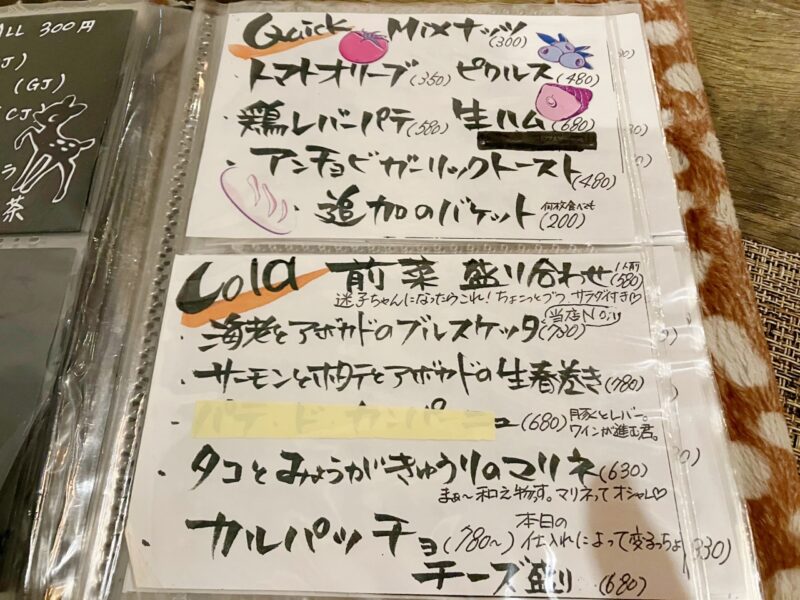 ALL 300円
J)
(GJ)
(CJ)
ラ
茶
Quick Mixナッツ(300)
・トマトオリーブ(350) ピクルス(480)
・鶏レバーパテ(580) 生ハム(680)
・アンチョビガーリックトースト(480)
・追加のバケット 何枚食べても(200)
Cold 前菜盛り合わせ 1人前(580)
迷子ちゃんになったらこれ!ちょこっとづつ サラダ付き♡
・海老とアボカドのブルスケッタ(730) 当店No.1!
・サーモンとホタテとアボカドの生春巻き(780)
・パテ ド カンパーニュ(680) 豚とレバー。
ワインが進む君。
・タコとみょうがきゅうりのマリネ(630)
まぁ〜和え物っす。マリネってオシャレ♡
・カルパッチョ(780〜) 本日の
仕入れによって変るっちょ
330)
チーズ盛り(680)